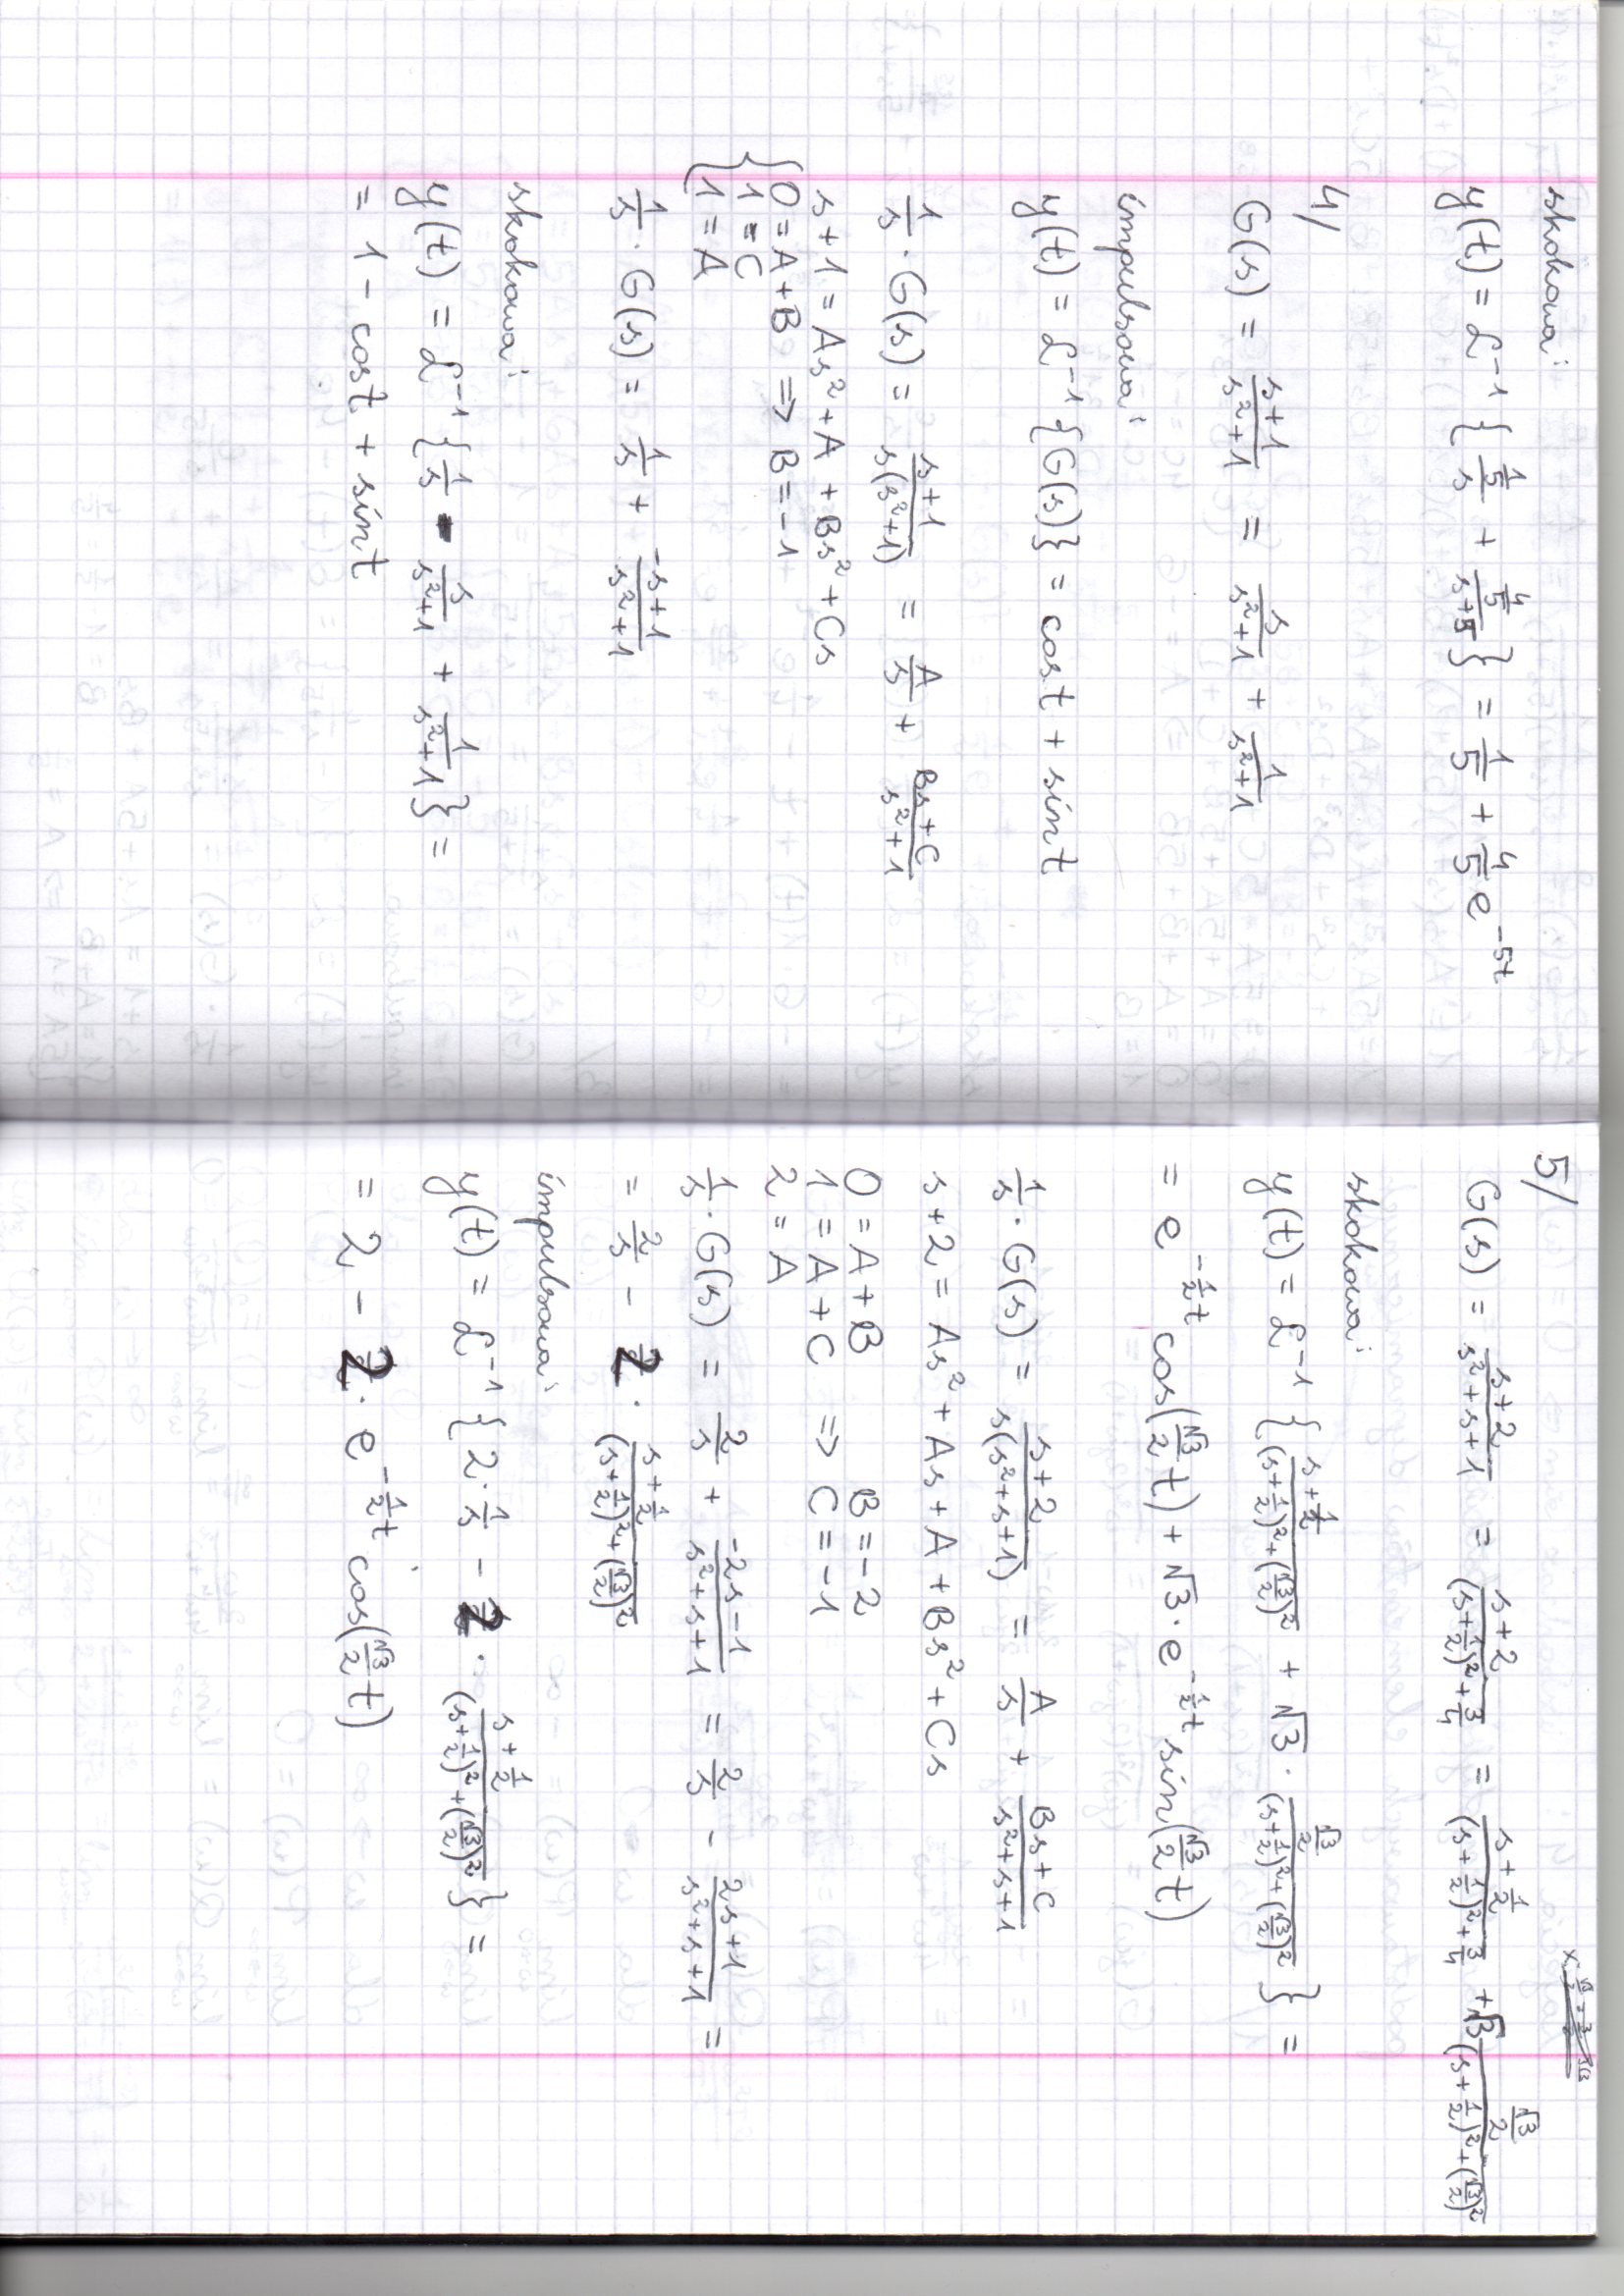 skokowa:
y(t) = ℒ⁻¹ { (1/5)/s + (4/5)/(s+5) } = 1/5 + 4/5 e^(-5t)
4/
G(s) = (s+1)/(s²+1) = s/(s²+1) + 1/(s²+1)
impulsowa:
y(t) = ℒ⁻¹ {G(s)} = cost + sint
1/s · G(s) = (s+1)/(s(s²+1)) = A/s + (Bs+C)/(s²+1)
s+1 = As²+A + Bs² + Cs
{ 0 = A+B => B = -1
1 = C
1 = A
1/s · G(s) = 1/s + (-s+1)/(s²+1)
skokowa:
y(t) = ℒ⁻¹ { 1/s - s/(s²+1) + 1/(s²+1) } =
= 1 - cost + sint
5/
G(s) = (s+2)/(s²+s+1) = (s+2)/((s+1/2)²+3/4) = (s+1/2)/((s+1/2)²+3/4) + √3 (√3/2)/((s+1/2)²+(√3/2)²)
skokowa:
y(t) = ℒ⁻¹ { (s+1/2)/((s+1/2)²+(√3/2)²) + √3 · (√3/2)/((s+1/2)²+(√3/2)²) } =
= e^(-1/2 t) cos(√3/2 t) + √3 · e^(-1/2 t) sin(√3/2 t)
1/s · G(s) = (s+2)/(s(s²+s+1)) = A/s + (Bs+C)/(s²+s+1)
s+2 = As² + As + A + Bs² + Cs
0 = A + B B = -2
1 = A + C => C = -1
2 = A
1/s · G(s) = 2/s + (-2s-1)/(s²+s+1) = 2/s - (2s+1)/(s²+s+1) =
= 2/s - 2 · (s+1/2)/((s+1/2)²+(√3/2)²)
impulsowa:
y(t) = ℒ⁻¹ { 2 · 1/s - 2 · (s+1/2)/((s+1/2)²+(√3/2)²) } =
= 2 - 2 · e^(-1/2 t) cos(√3/2 t)